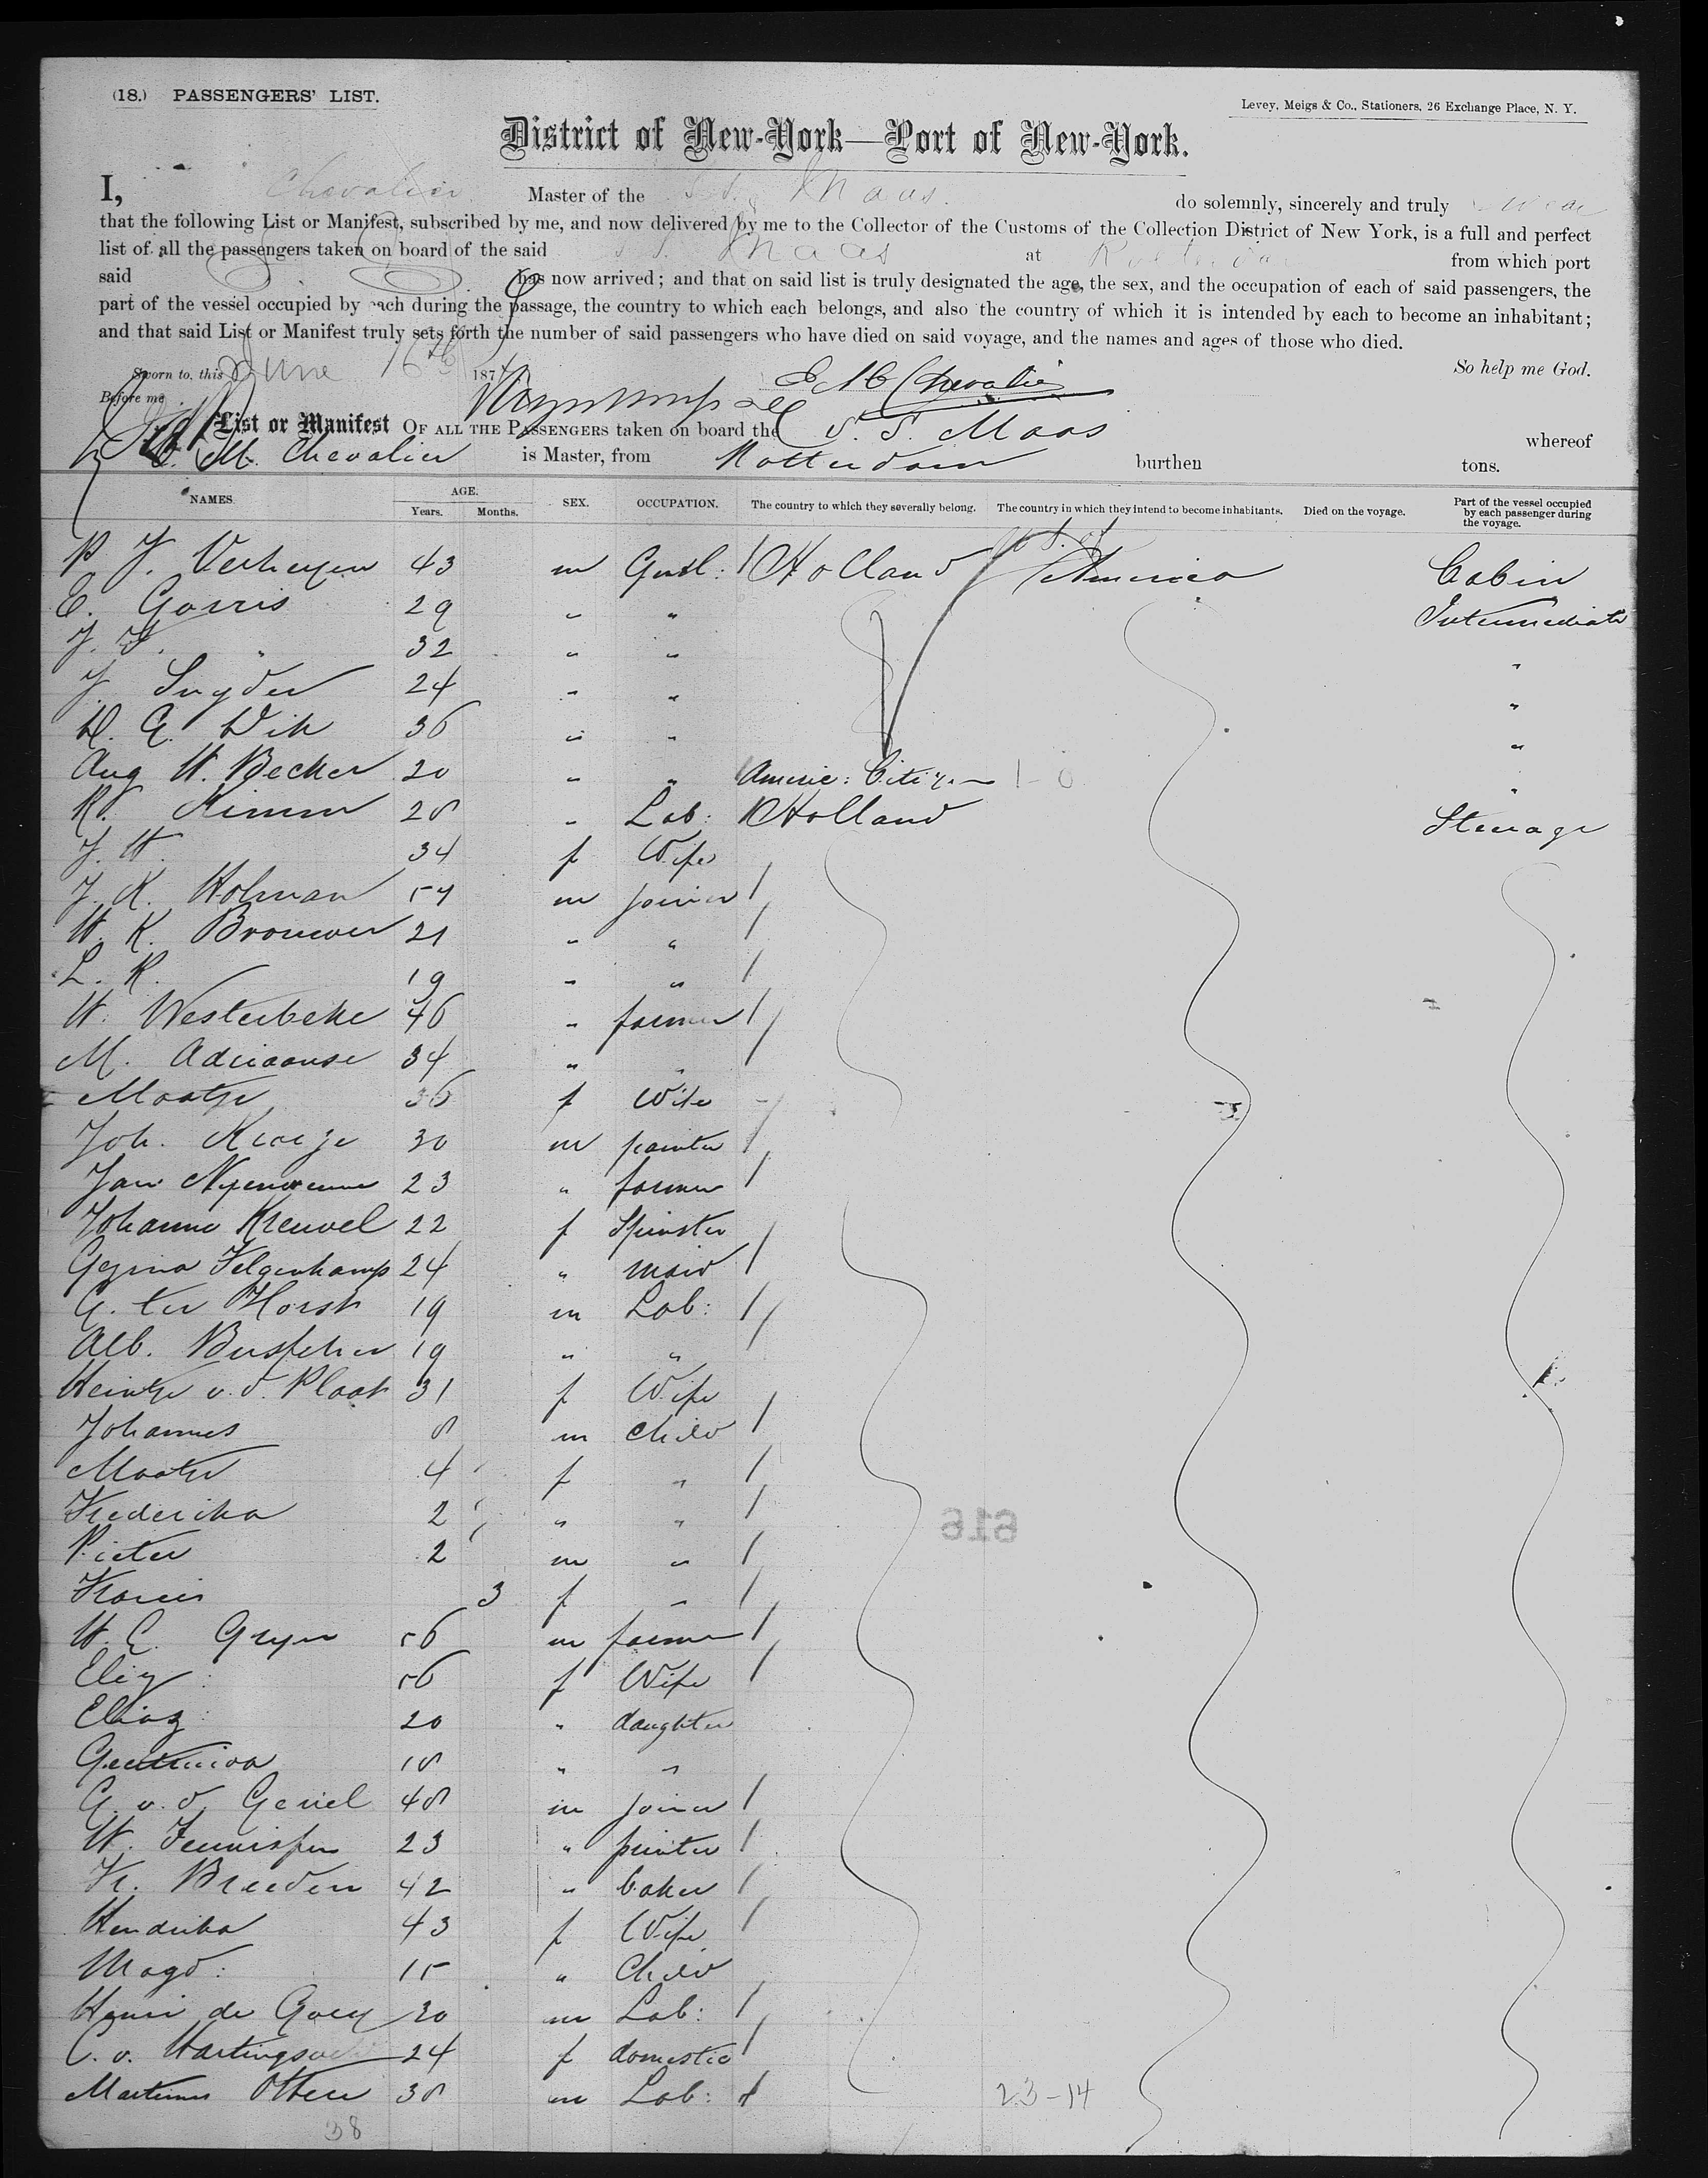 (18.) PASSENGERS' LIST.
Levey, Meigs & Co., Stationers, 26 Exchange Place, N. Y.
District of New-York—Port of New-York.
I, Chevalier Master of the S.S. Maas do solemnly, sincerely and truly swear
that the following List or Manifest, subscribed by me, and now delivered by me to the Collector of the Customs of the Collection District of New York, is a full and perfect
list of all the passengers taken on board of the said S.S. Maas at Rotterdam from which port
said has now arrived; and that on said list is truly designated the age, the sex, and the occupation of each of said passengers, the
part of the vessel occupied by each during the passage, the country to which each belongs, and also the country of which it is intended by each to become an inhabitant;
and that said List or Manifest truly sets forth the number of said passengers who have died on said voyage, and the names and ages of those who died.
So help me God.
Sworn to, this June 16th 187
Before me
Chevalier
List or Manifest OF ALL THE PASSENGERS taken on board the S. S. Maas whereof
M. Chevalier is Master, from Rotterdam burthen tons.
NAMES. AGE. Years. Months. SEX. OCCUPATION. The country to which they severally belong. The country in which they intend to become inhabitants. Died on the voyage. Part of the vessel occupied by each passenger during the voyage.
P J. Verheyen 43 m Gentl: Holland U S. of America Cabin
E. Gorris 29 " " Intermediate
J. F. " 32 " " "
J. Snyder 24 " " "
D. G. Dik 36 " " "
Aug H. Becker 20 " " Americ: Citizen "
R. Kimm 28 " Lab: Holland Steerage
J. H. 34 f Wife
J. K. Holman 54 m joiner
H. K. Brouwer 21 " "
L. K. 19 " "
H. Westerbeke 46 " farmer
M. Adriaanse 34 " "
Maatje 36 f Wife
Joh. Kraeje 30 m painter
Jan 23 " farmer
Johanna Kreuvel 22 f Spinster
Gezina Velgenkamp 24 " maid
G. ter Horst 19 m Lab:
Alb. 19 " "
Heintje v. d. Plaat 31 f Wife
Johannes 8 m child
Maatje 4 f "
Frederika 2 " "
Pieter 2 m "
Francis 3 f "
H. C. 56 m farmer
Eliz: 56 f Wife
Eliaz: 20 " daughter
18 " "
G. v. d. Geviel 48 m joiner
H. 23 " printer
Fr. Breeden 42 " baker
Hendrika 43 f Wife
Magd: 15 " Child
Henri de Goey 20 m Lab:
C. v. 24 f domestic
Martinus Otten 38 m Lab:
616
23-14
38